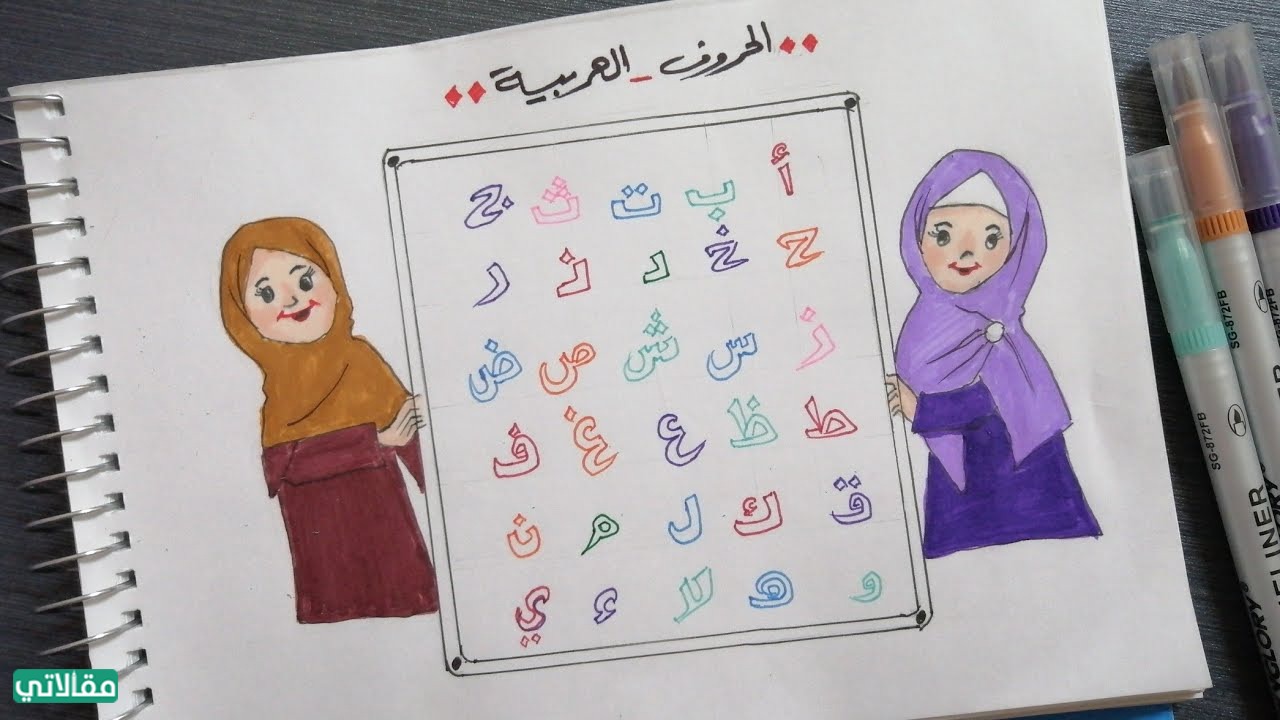 الحروف_العربية
أ ب ت ث ج
ح خ د ذ ر
ز س ش ص ض
ط ظ ع غ ف
ق ك ل م ن
و ه لا ء ي
SG-872FB
SG-872FB
مقالاتي